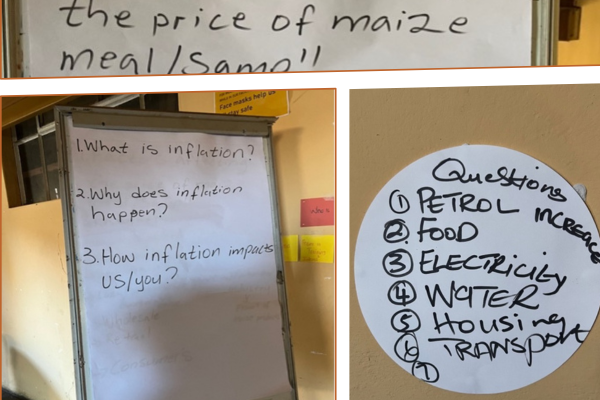 the price of maize
meal/samp"
Face masks help us
stay safe
1. What is inflation?
2. Why does inflation
happen?
3. How inflation impacts
US/you?
Questions
① PETROL INCREASE
② FOOD
③ ELECTRICITY
④ WATER
⑤ Housing
⑥ TRANSPORT
⑦